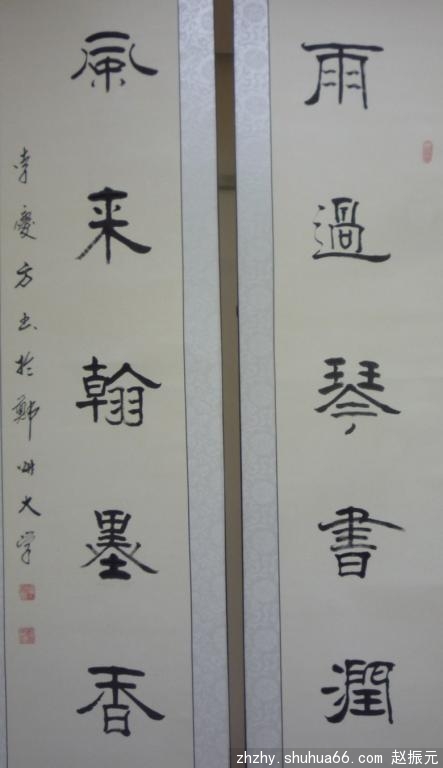 雨過琴書潤
風来翰墨香
李慶方書於鄭州大学
zhzhy.shuhua66.com 赵振元